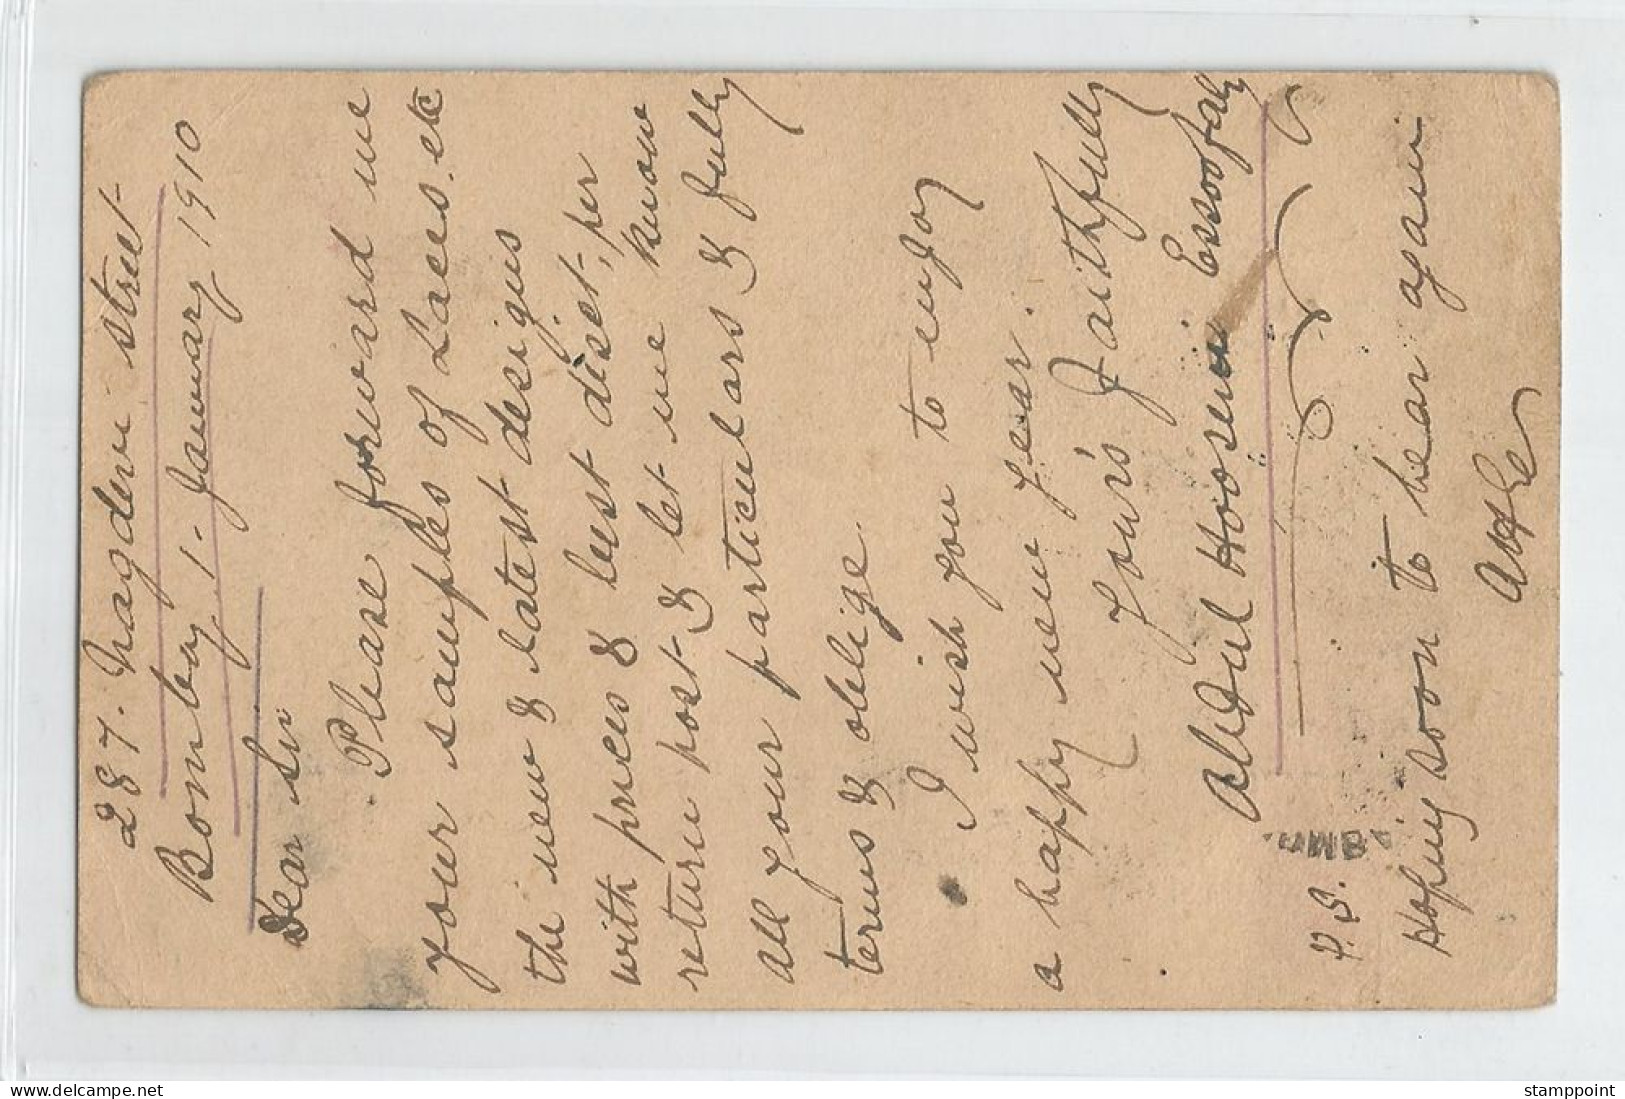 287. Nagdevi street
Bombay 1. January 1910
Dear Sir
Please forward me
your samples of Laces. etc
the new & latest designs
with prices & best disct, per
return post & let me know
all your particulars & fully
terms & oblige.
I wish you to enjoy
a happy new year.
Your's Faithfully
Abdul Hoosein Essoofally
P.S.
Hoping soon to hear again
stamppoint